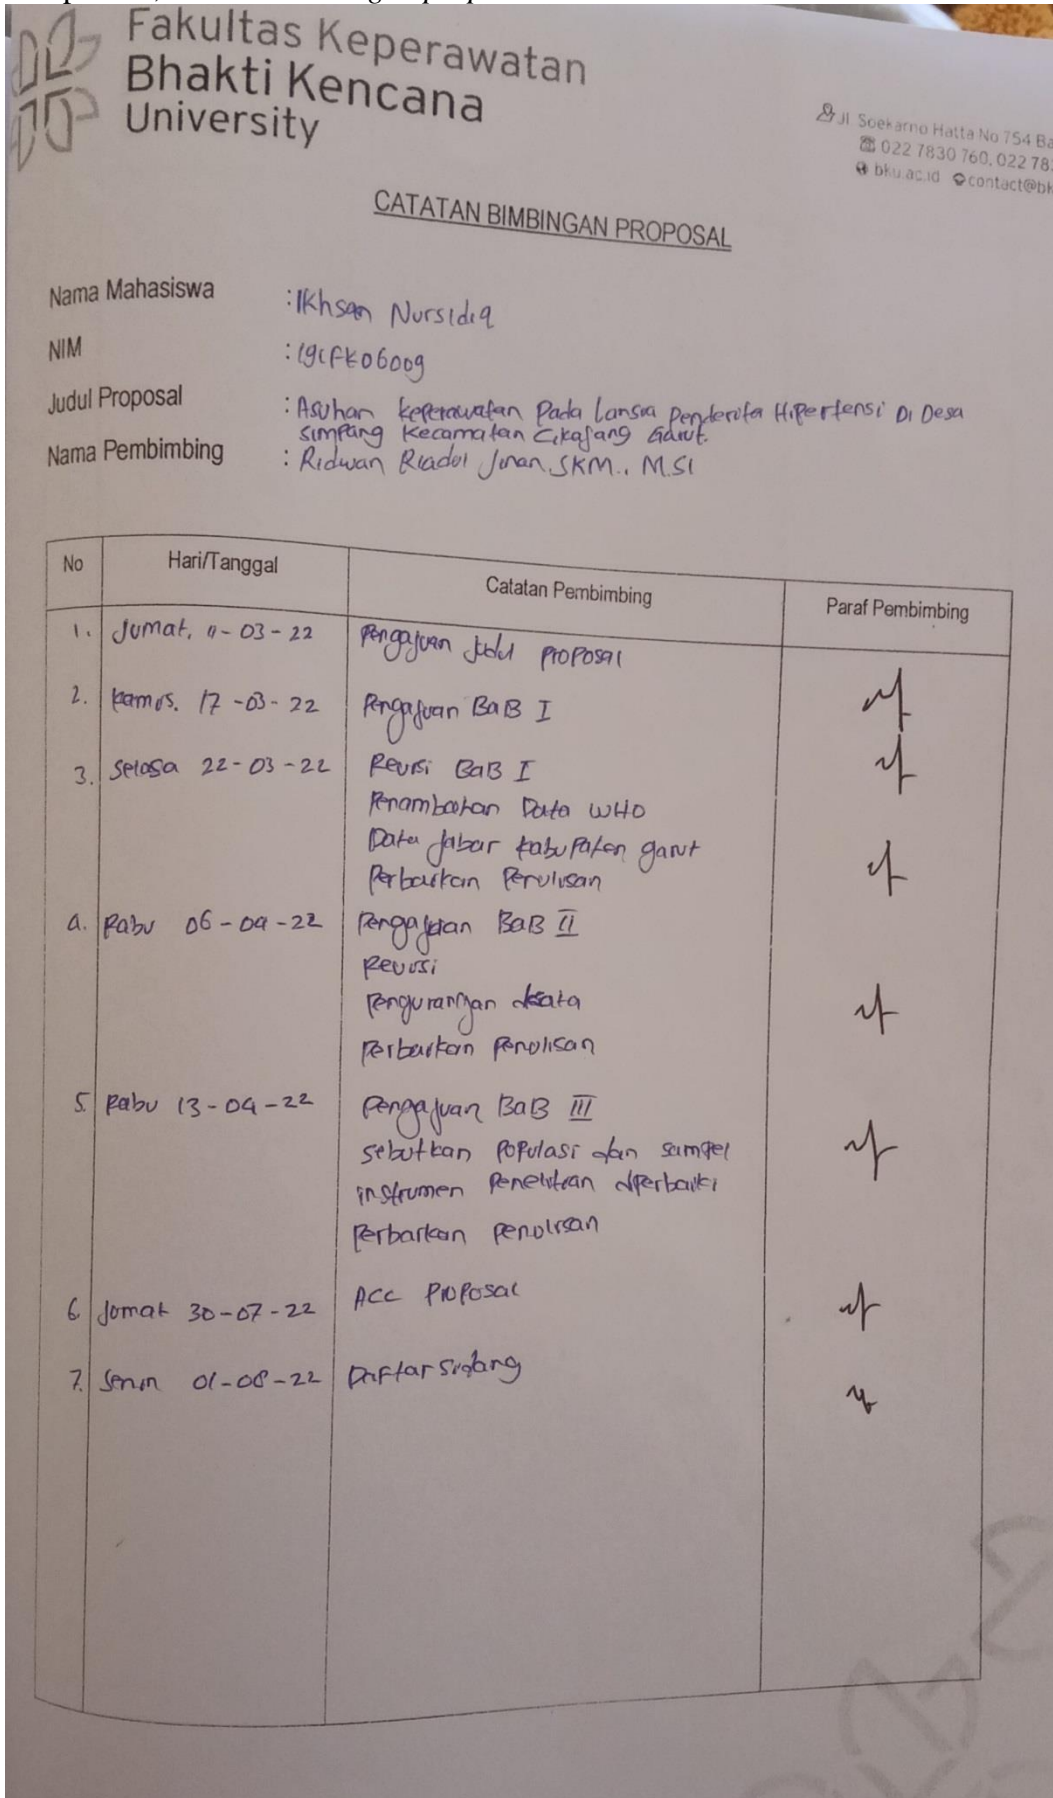 Fakultas Keperawatan
Bhakti Kencana
University
Jl. Soekarno Hatta No 754 Ba
022 7830 760, 022 78
bku.ac.id contact@bk
CATATAN BIMBINGAN PROPOSAL
Nama Mahasiswa : Ikhsan Nursidiq
NIM : 191FK06009
Judul Proposal : Asuhan keperawatan Pada Lansia Penderita Hipertensi Di Desa
Simpang Kecamatan Cikajang Garut.
Nama Pembimbing : Ridwan Riadul Jinan, SKM., M.Si
No Hari/Tanggal Catatan Pembimbing Paraf Pembimbing
1. Jumat, 11-03-22 Pengajuan Judul Proposal
2. Kamis. 17-03-22 Pengajuan BaB I
3. Selasa 22-03-22 Revisi BaB I
Penambahan Data WHO
Data Jabar kabupaten garut
Perbaikan Penulisan
4. Rabu 06-04-22 Pengajuan BaB II
Revisi
Pengurangan
Perbaikan Penulisan
5. Rabu 13-04-22 Pengajuan BaB III
sebutkan Populasi dan sampel
instrumen Penelitian diperbaiki
Perbaikan penulisan
6 Jumat 30-07-22 ACC Proposal
7. Senin 01-08-22 Daftar Sidang